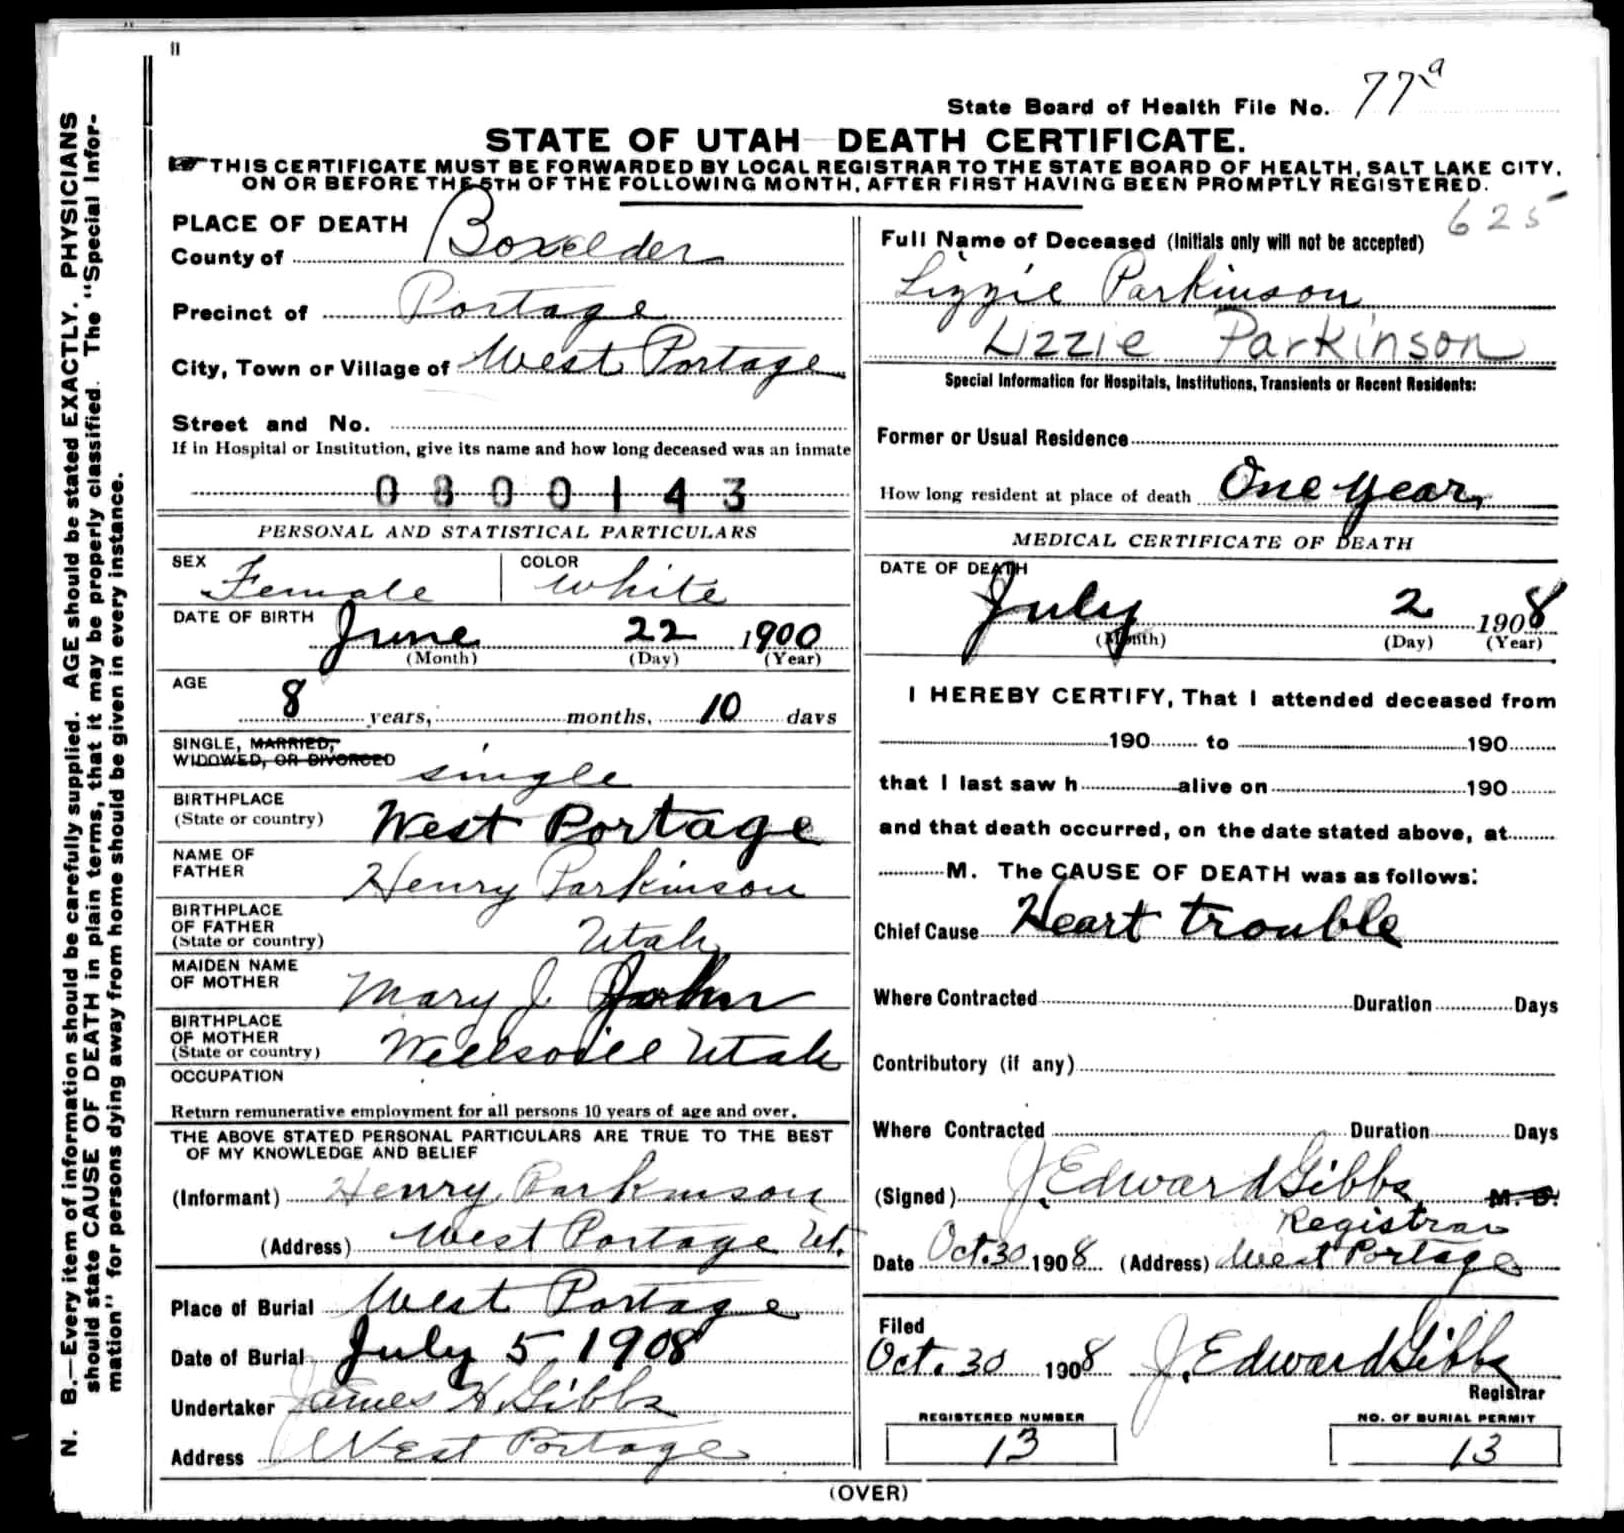 State Board of Health File No. 77a
STATE OF UTAH—DEATH CERTIFICATE.
THIS CERTIFICATE MUST BE FORWARDED BY LOCAL REGISTRAR TO THE STATE BOARD OF HEALTH, SALT LAKE CITY,
ON OR BEFORE THE 5TH OF THE FOLLOWING MONTH, AFTER FIRST HAVING BEEN PROMPTLY REGISTERED.
N. B.—Every item of information should be carefully supplied. AGE should be stated EXACTLY. PHYSICIANS
should state CAUSE OF DEATH in plain terms, that it may be properly classified. The "Special Infor-
mation" for persons dying away from home should be given in every instance.
PLACE OF DEATH
County of Boxelder
Precinct of Portage
City, Town or Village of West Portage
Street and No.
If in Hospital or Institution, give its name and how long deceased was an inmate
0800143
PERSONAL AND STATISTICAL PARTICULARS
SEX Female COLOR white
DATE OF BIRTH June 22 1900
(Month) (Day) (Year)
AGE
8 years, months, 10 days
SINGLE, MARRIED,
WIDOWED, OR DIVORCED single
BIRTHPLACE
(State or country) West Portage
NAME OF
FATHER Henry Parkinson
BIRTHPLACE
OF FATHER
(State or country) Utah
MAIDEN NAME
OF MOTHER Mary J.
BIRTHPLACE
OF MOTHER
(State or country) Wellsvill Utah
OCCUPATION
Return remunerative employment for all persons 10 years of age and over.
THE ABOVE STATED PERSONAL PARTICULARS ARE TRUE TO THE BEST
OF MY KNOWLEDGE AND BELIEF
(Informant) Henry Parkinson
(Address) West Portage Ut.
Place of Burial West Portage
Date of Burial July 5 1908
Undertaker James H. Gibbs
Address West Portage
625
Full Name of Deceased (Initials only will not be accepted)
Lizzie Parkinson
Lizzie Parkinson
Special Information for Hospitals, Institutions, Transients or Recent Residents:
Former or Usual Residence
How long resident at place of death One year,
MEDICAL CERTIFICATE OF DEATH
DATE OF DEATH
July 2 1908
(Month) (Day) (Year)
I HEREBY CERTIFY, That I attended deceased from
190 to 190
that I last saw h alive on 190
and that death occurred, on the date stated above, at
M. The CAUSE OF DEATH was as follows:
Chief Cause Heart trouble
Where Contracted Duration Days
Contributory (if any)
Where Contracted Duration Days
(Signed) J. Edward Gibbs M. D.
Registrar
Date Oct. 30 1908 (Address) West Portage
Filed
Oct. 30 1908 J. Edward Gibbs
Registrar
REGISTERED NUMBER NO. OF BURIAL PERMIT
13 13
(OVER)